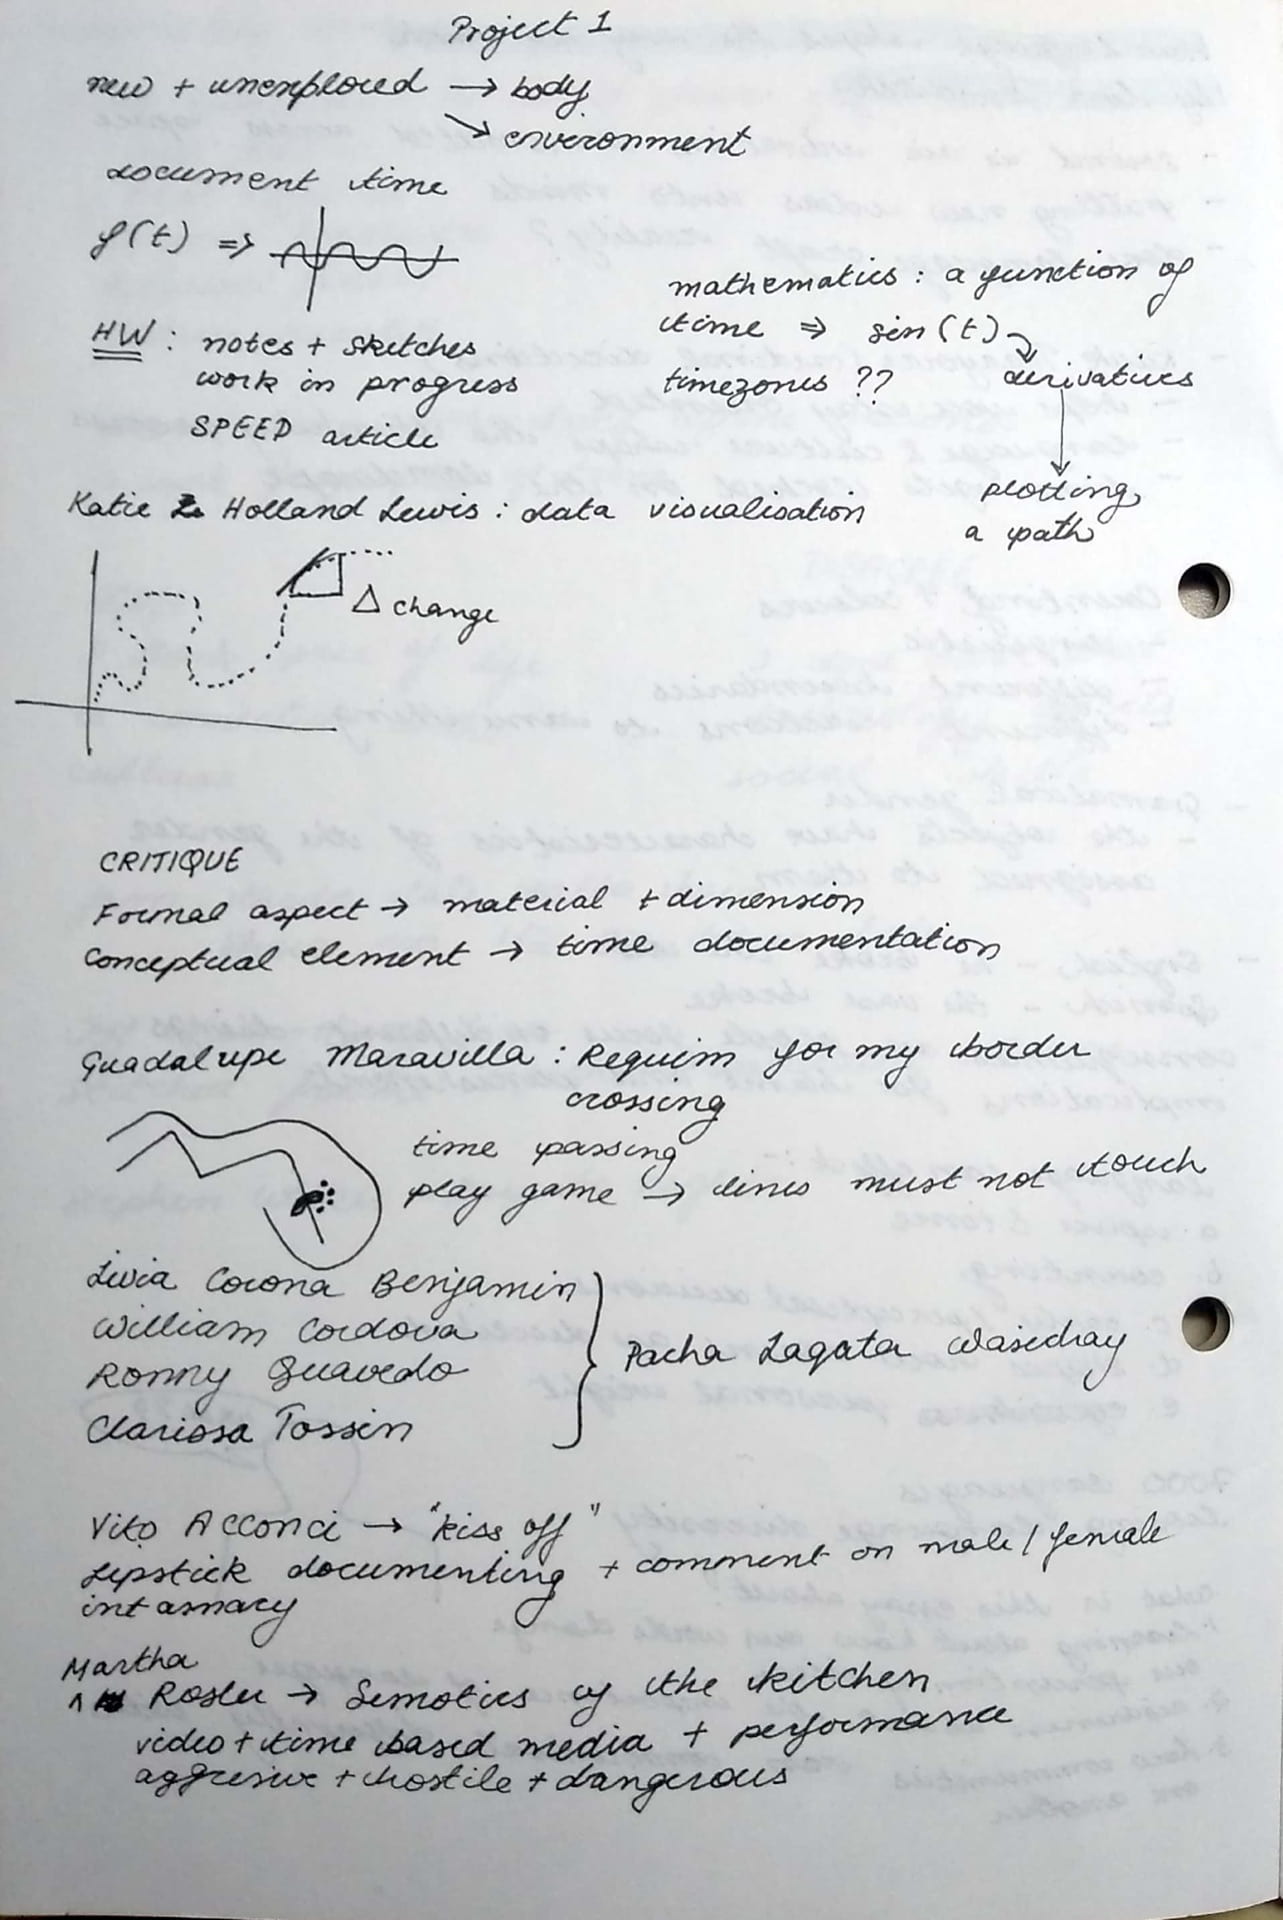 Project 1
new + unexplored → body
↘ environment
document time
f(t) ⇒
mathematics : a function of
time ⇒ sin(t)
timezones ??
derivatives
plotting
a path
HW : notes + sketches
work in progress
SPEED article
Katie Holland Lewis : data visualisation
Δ change
CRITIQUE
Formal aspect → material + dimension
Conceptual element → time documentation
Guadalupe Maravilla : Requim for my border
crossing
time passing
play game → lines must not touch
Livia Corona Benjamin
William Cordova
Ronny Quavedo
Clarissa Tossin
Pacha Lagata Wasichay
Vito Acconci → "kiss off"
Lipstick documenting + comment on male / female
intamacy
Martha
Rosler → Semotics of the kitchen
video + time based media + performance
aggresive + hostile + dangerous